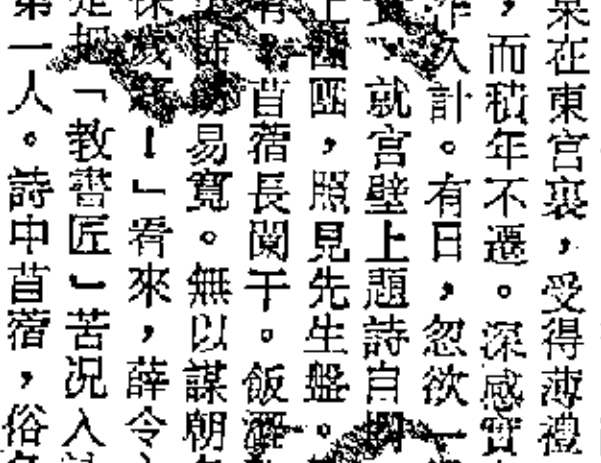 在東宮裏，受得薄禮
，而積年不遷。深感實
作久計。有日，忽欲一
，就宮壁上題詩自
上團團，照見先生盤。
苜蓿長闌干。飯澀
易寬。無以謀朝
保歲寒！」看來，薛令
是把「教書匠」苦況入
第一人。詩中苜蓿，俗